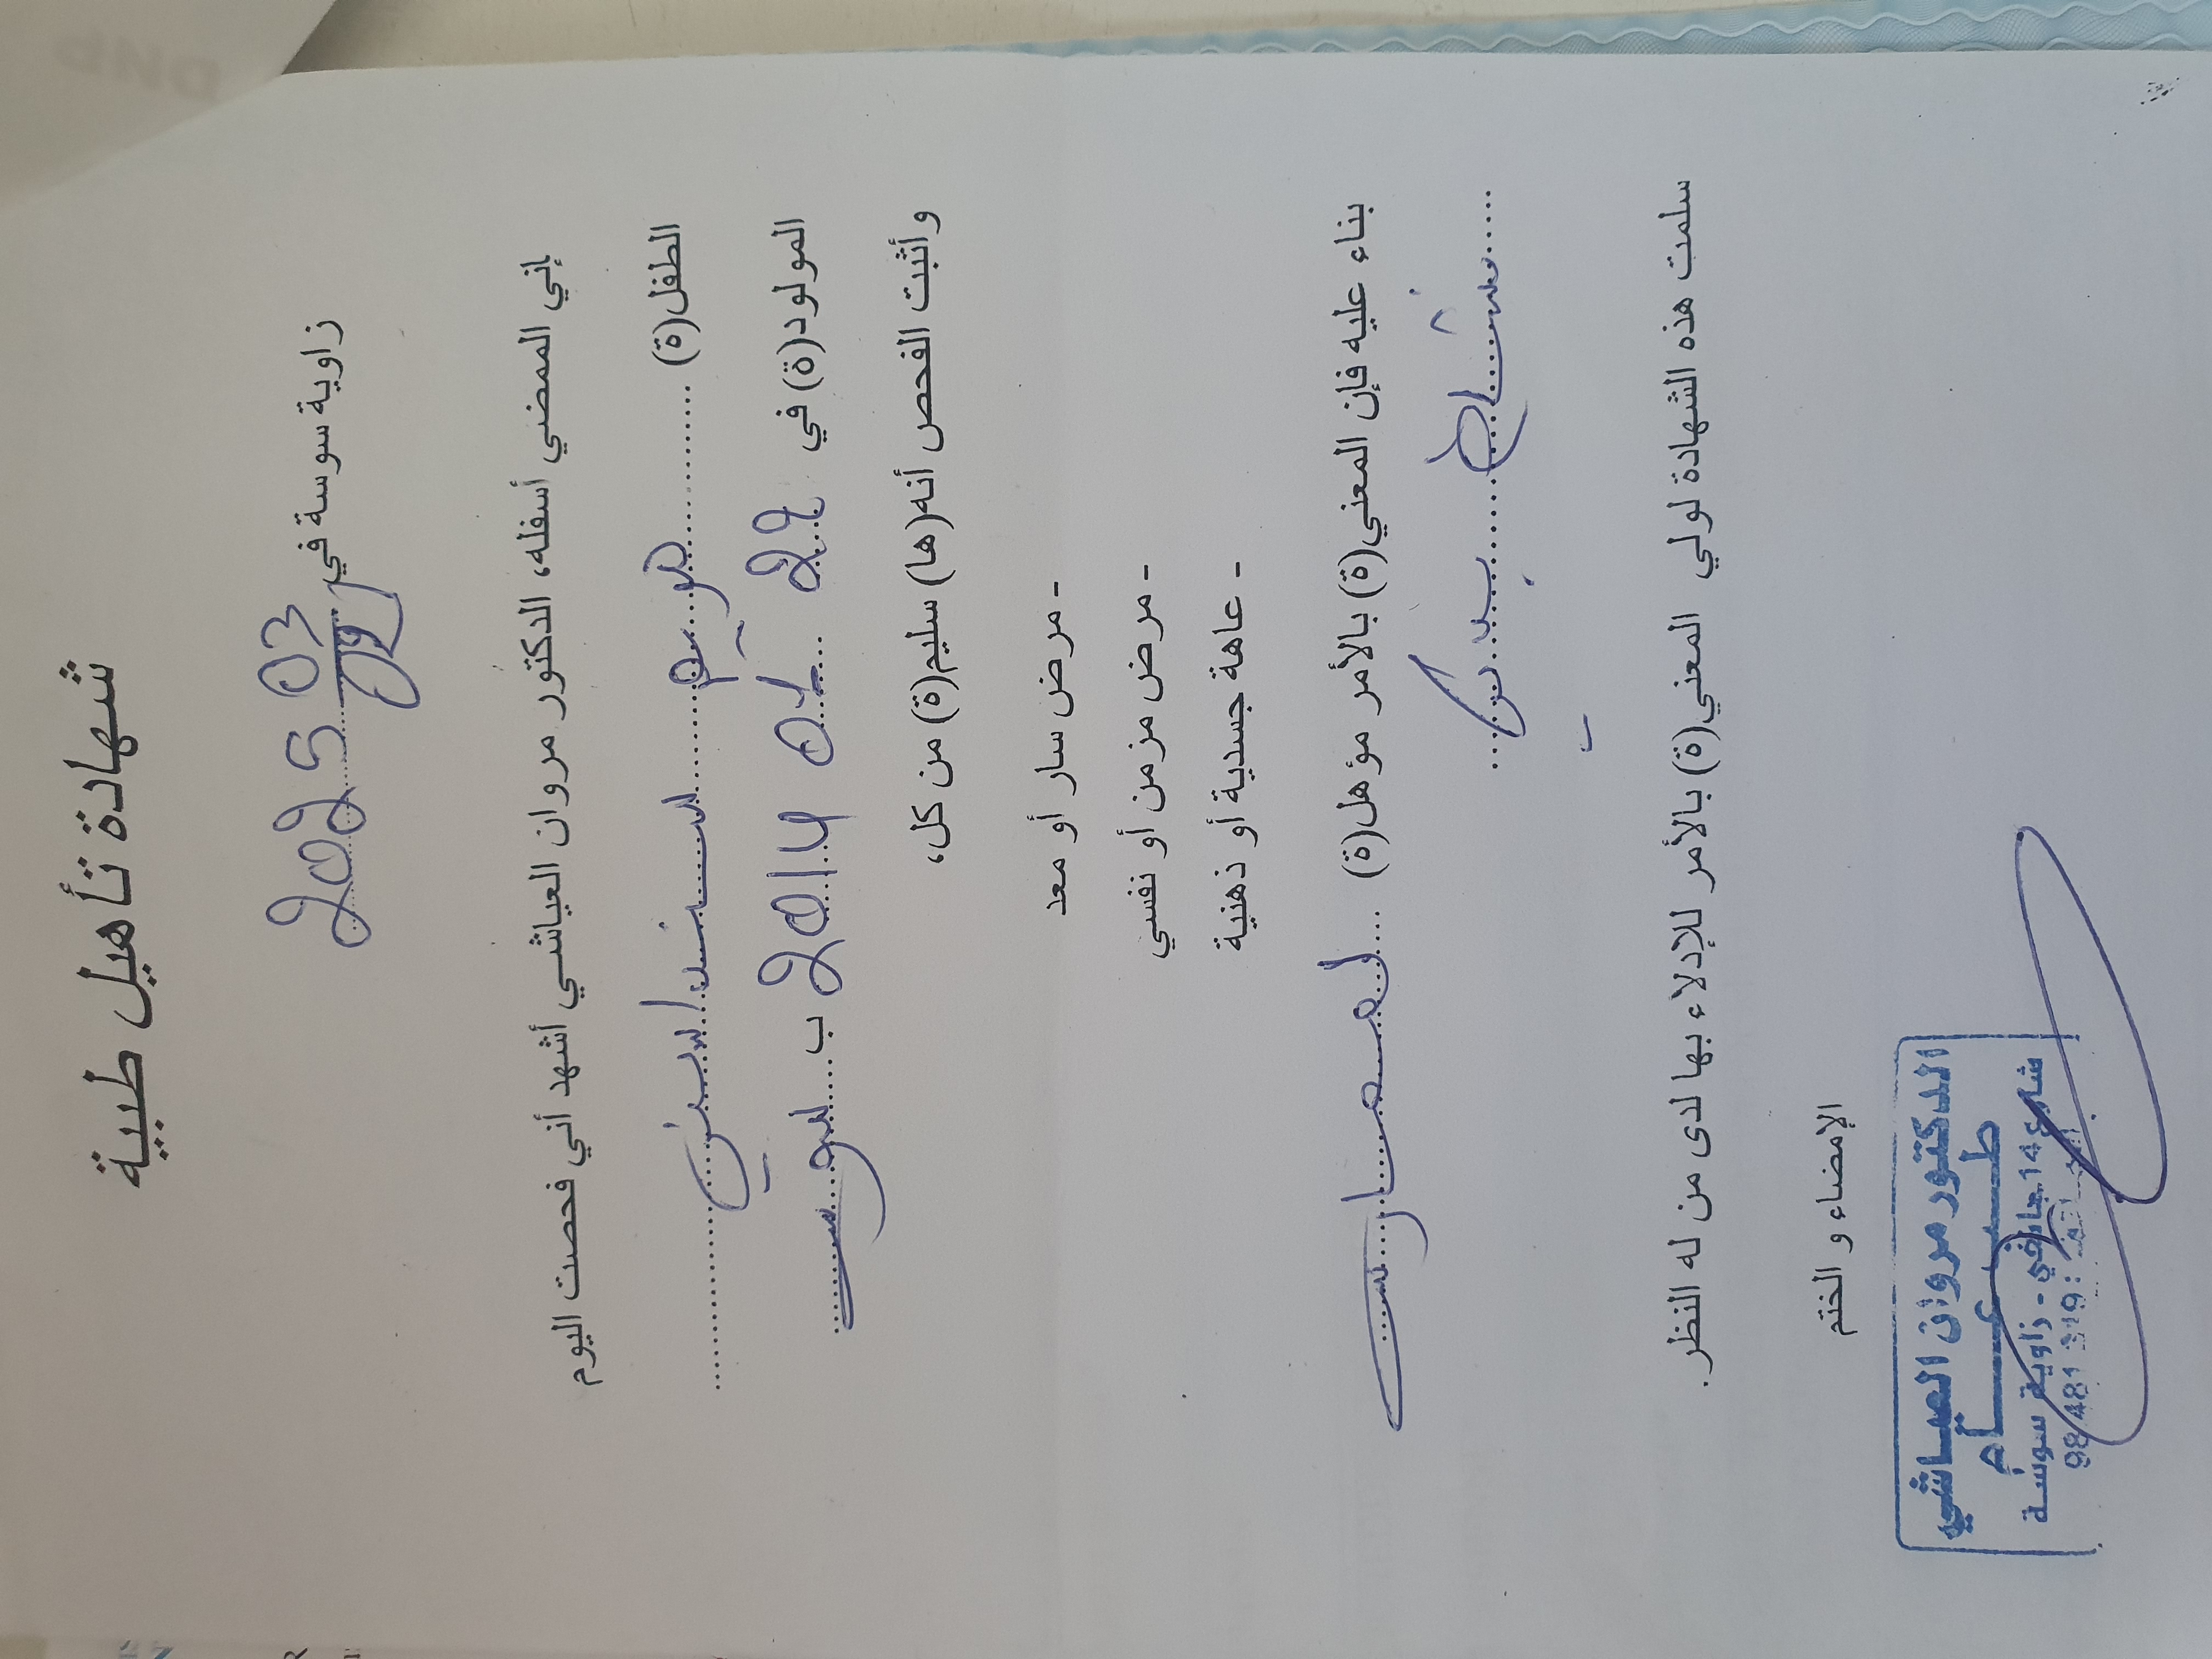 شهادة تأهيل طبية
زاوية سوسة في 03 2025
إني الممضي أسفله، الدكتور مروان العياشي أشهد أني فحصت اليوم
الطفل(ة)
المولود(ة) في 22 07 2014 ب سوسة
وأثبت الفحص أنه(ها) سليم(ة) من كل،
- مرض سار أو معد
- مرض مزمن أو نفسي
- عاهة جسدية أو ذهنية
بناء عليه فإن المعني(ة) بالأمر مؤهل(ة) لممارسة
نشاط
سلمت هذه الشهادة لولي المعني(ة) بالأمر للإدلاء بها لدى من له النظر.
الإمضاء و الختم
الدكتور مروان العياشي
طب عام
شارع 14 جانفي - زاوية سوسة